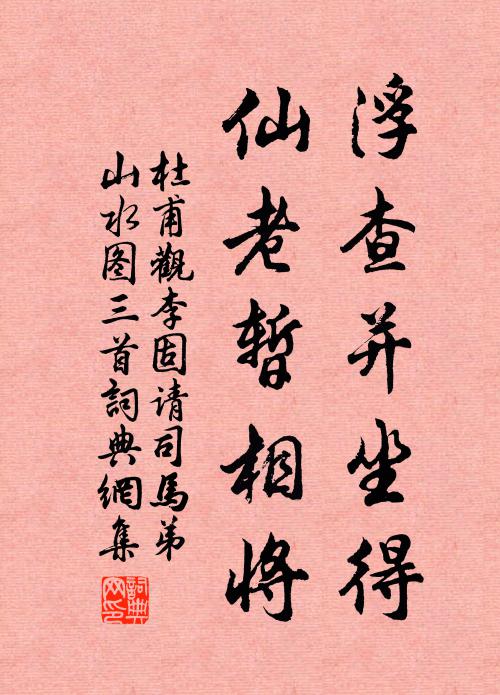 浮查并坐得
仙老暂相将
杜甫觀李固请司馬弟
山水图三首詞典網集
詞典网印